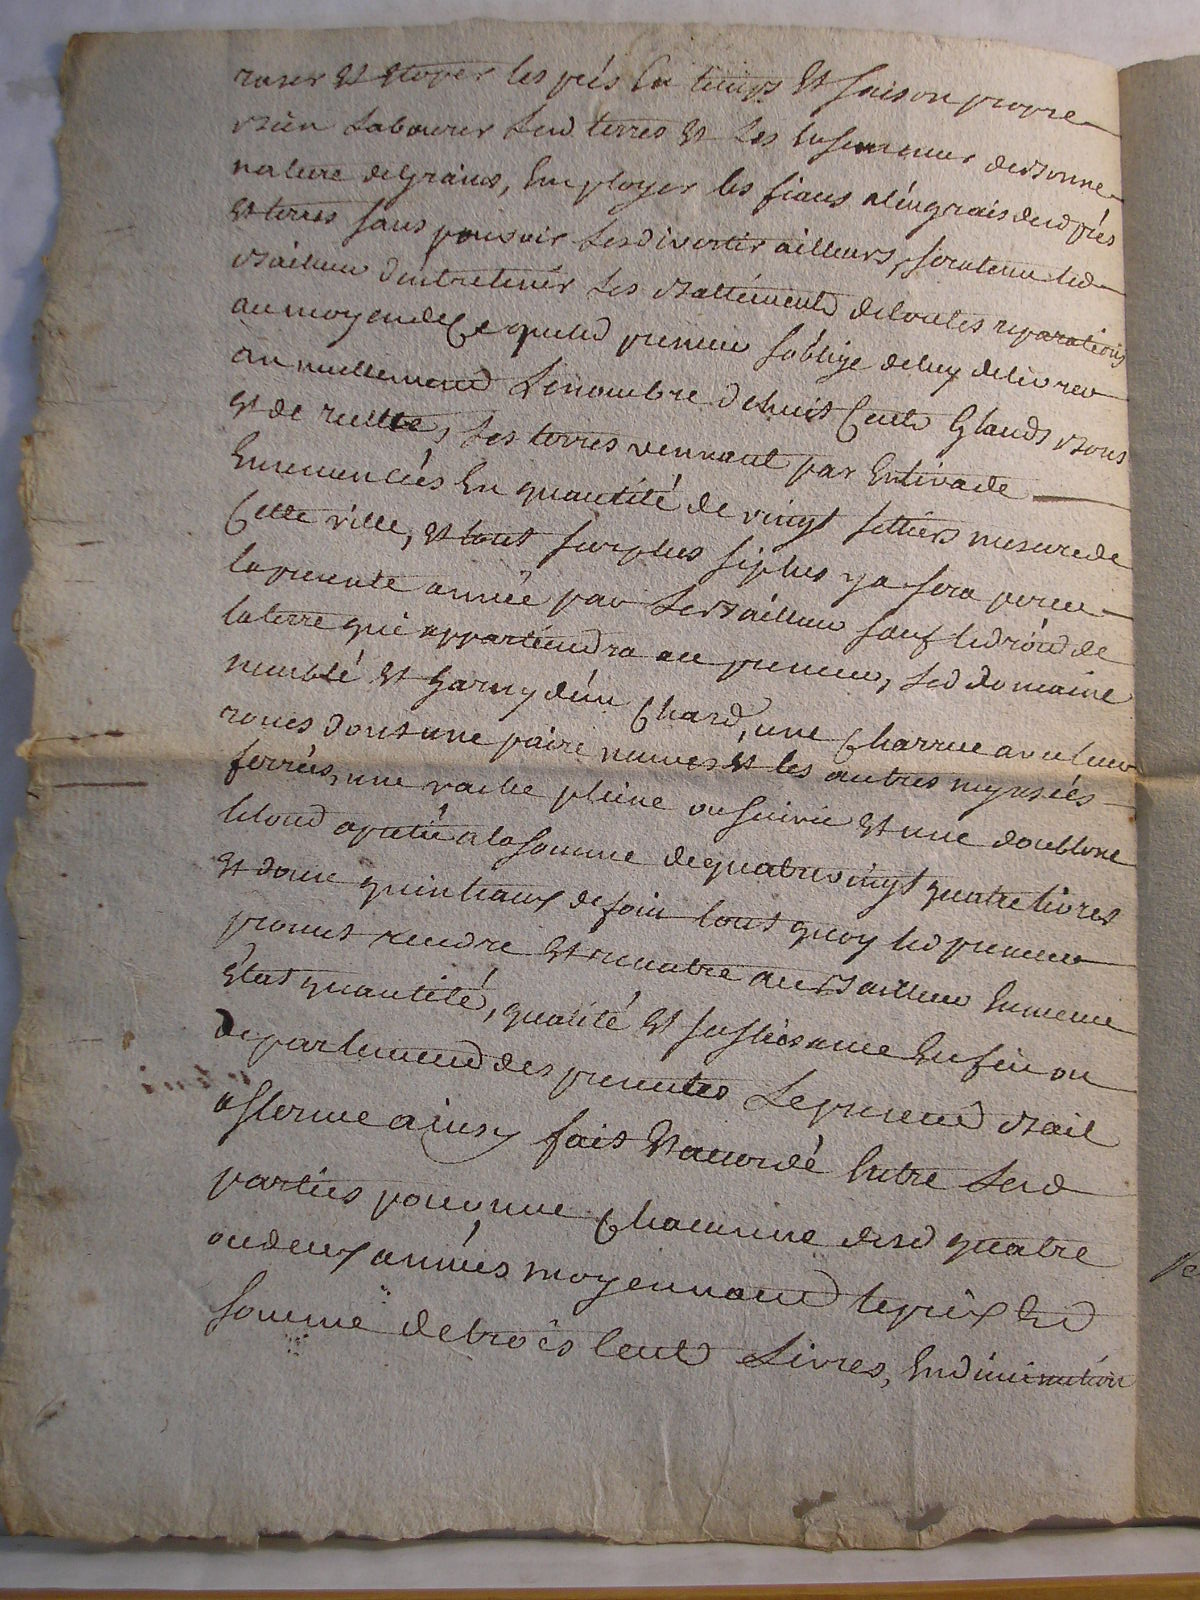 raser et étoper les prés En temps Et saison propre
bien Labourer Lesd terres et Les Ensemencer de bonne
nature de grains, Employer les fians à l'engrais desd prés
et terres sans pouvoir Les divertir ailleurs, sera tenu led
bailleur d'entretenir Les battiments de toutes reparations
au moyen de Ce que led preneur s'oblige de luy delivrer
annuellement Le nombre de huit Cents Glands bons
et de reitte, Les terres vennant par Entivade
Ensemencées En quantité de vingt settiers mesure de
Cette ville, et tout surplus si plus y a sera perceu
la presente année par Le bailleur sauf le droid de
la terre qui appartiendra au preneur, Led domaine
meublé et garny d'un Chard, une Charrue avec leurs
roues dont une paire neuves et les autres my usées
ferrées, une vache pleine ou suivie et une doublone
le tout apretié a la somme de quatre vingt quatre livres
et douze quintaux de foin tout quoy led preneur
promet rendre et remetre au bailleur En meme
état quantité, qualité et suffisance En fin ou
departement des presentes Le present bail
a sferme ainsy fait Et accordé Entre Lesd
parties pour une Chacunne desd quatre
ou deux années moyennant le prix Et
somme de trois Cents Livres, En diminution